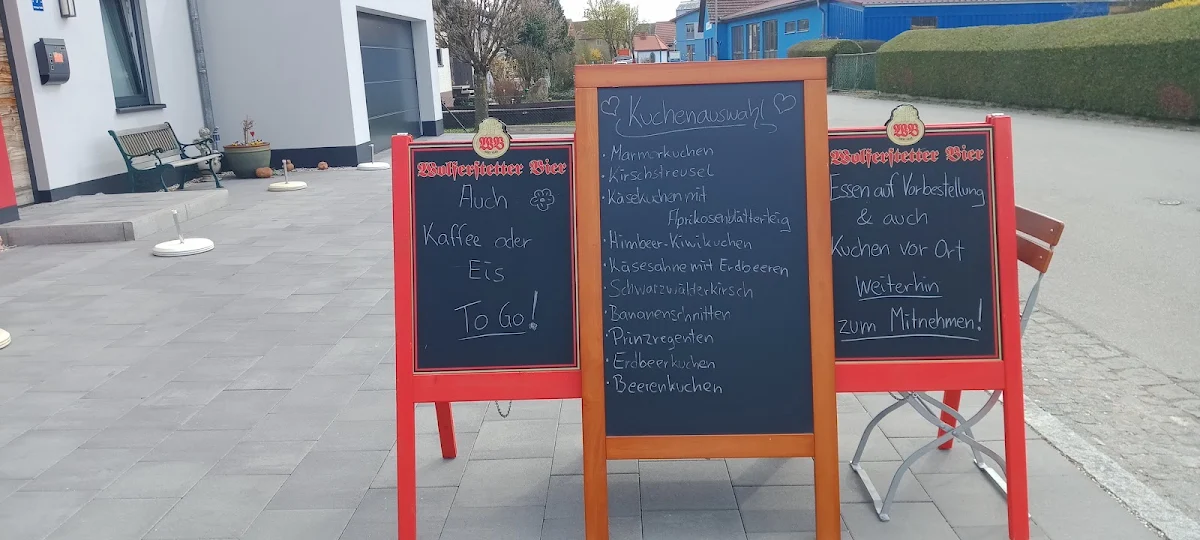 WB
Wolferstetter Bier
Auch
Kaffee oder
Eis
To Go!
Kuchenauswahl
· Marmorkuchen
· Kirschstreusel
· Käsekuchen mit
Aprikosenblätterteig
· Himbeer-Kiwikuchen
· Käsesahne mit Erdbeeren
· Schwarzwälterkirsch
· Bananenschnitten
· Prinzregenten
· Erdbeerkuchen
· Beerenkuchen
WB
Wolferstetter Bier
Essen auf Vorbestellung
& auch
Kuchen vor Ort
Weiterhin
zum Mitnehmen!